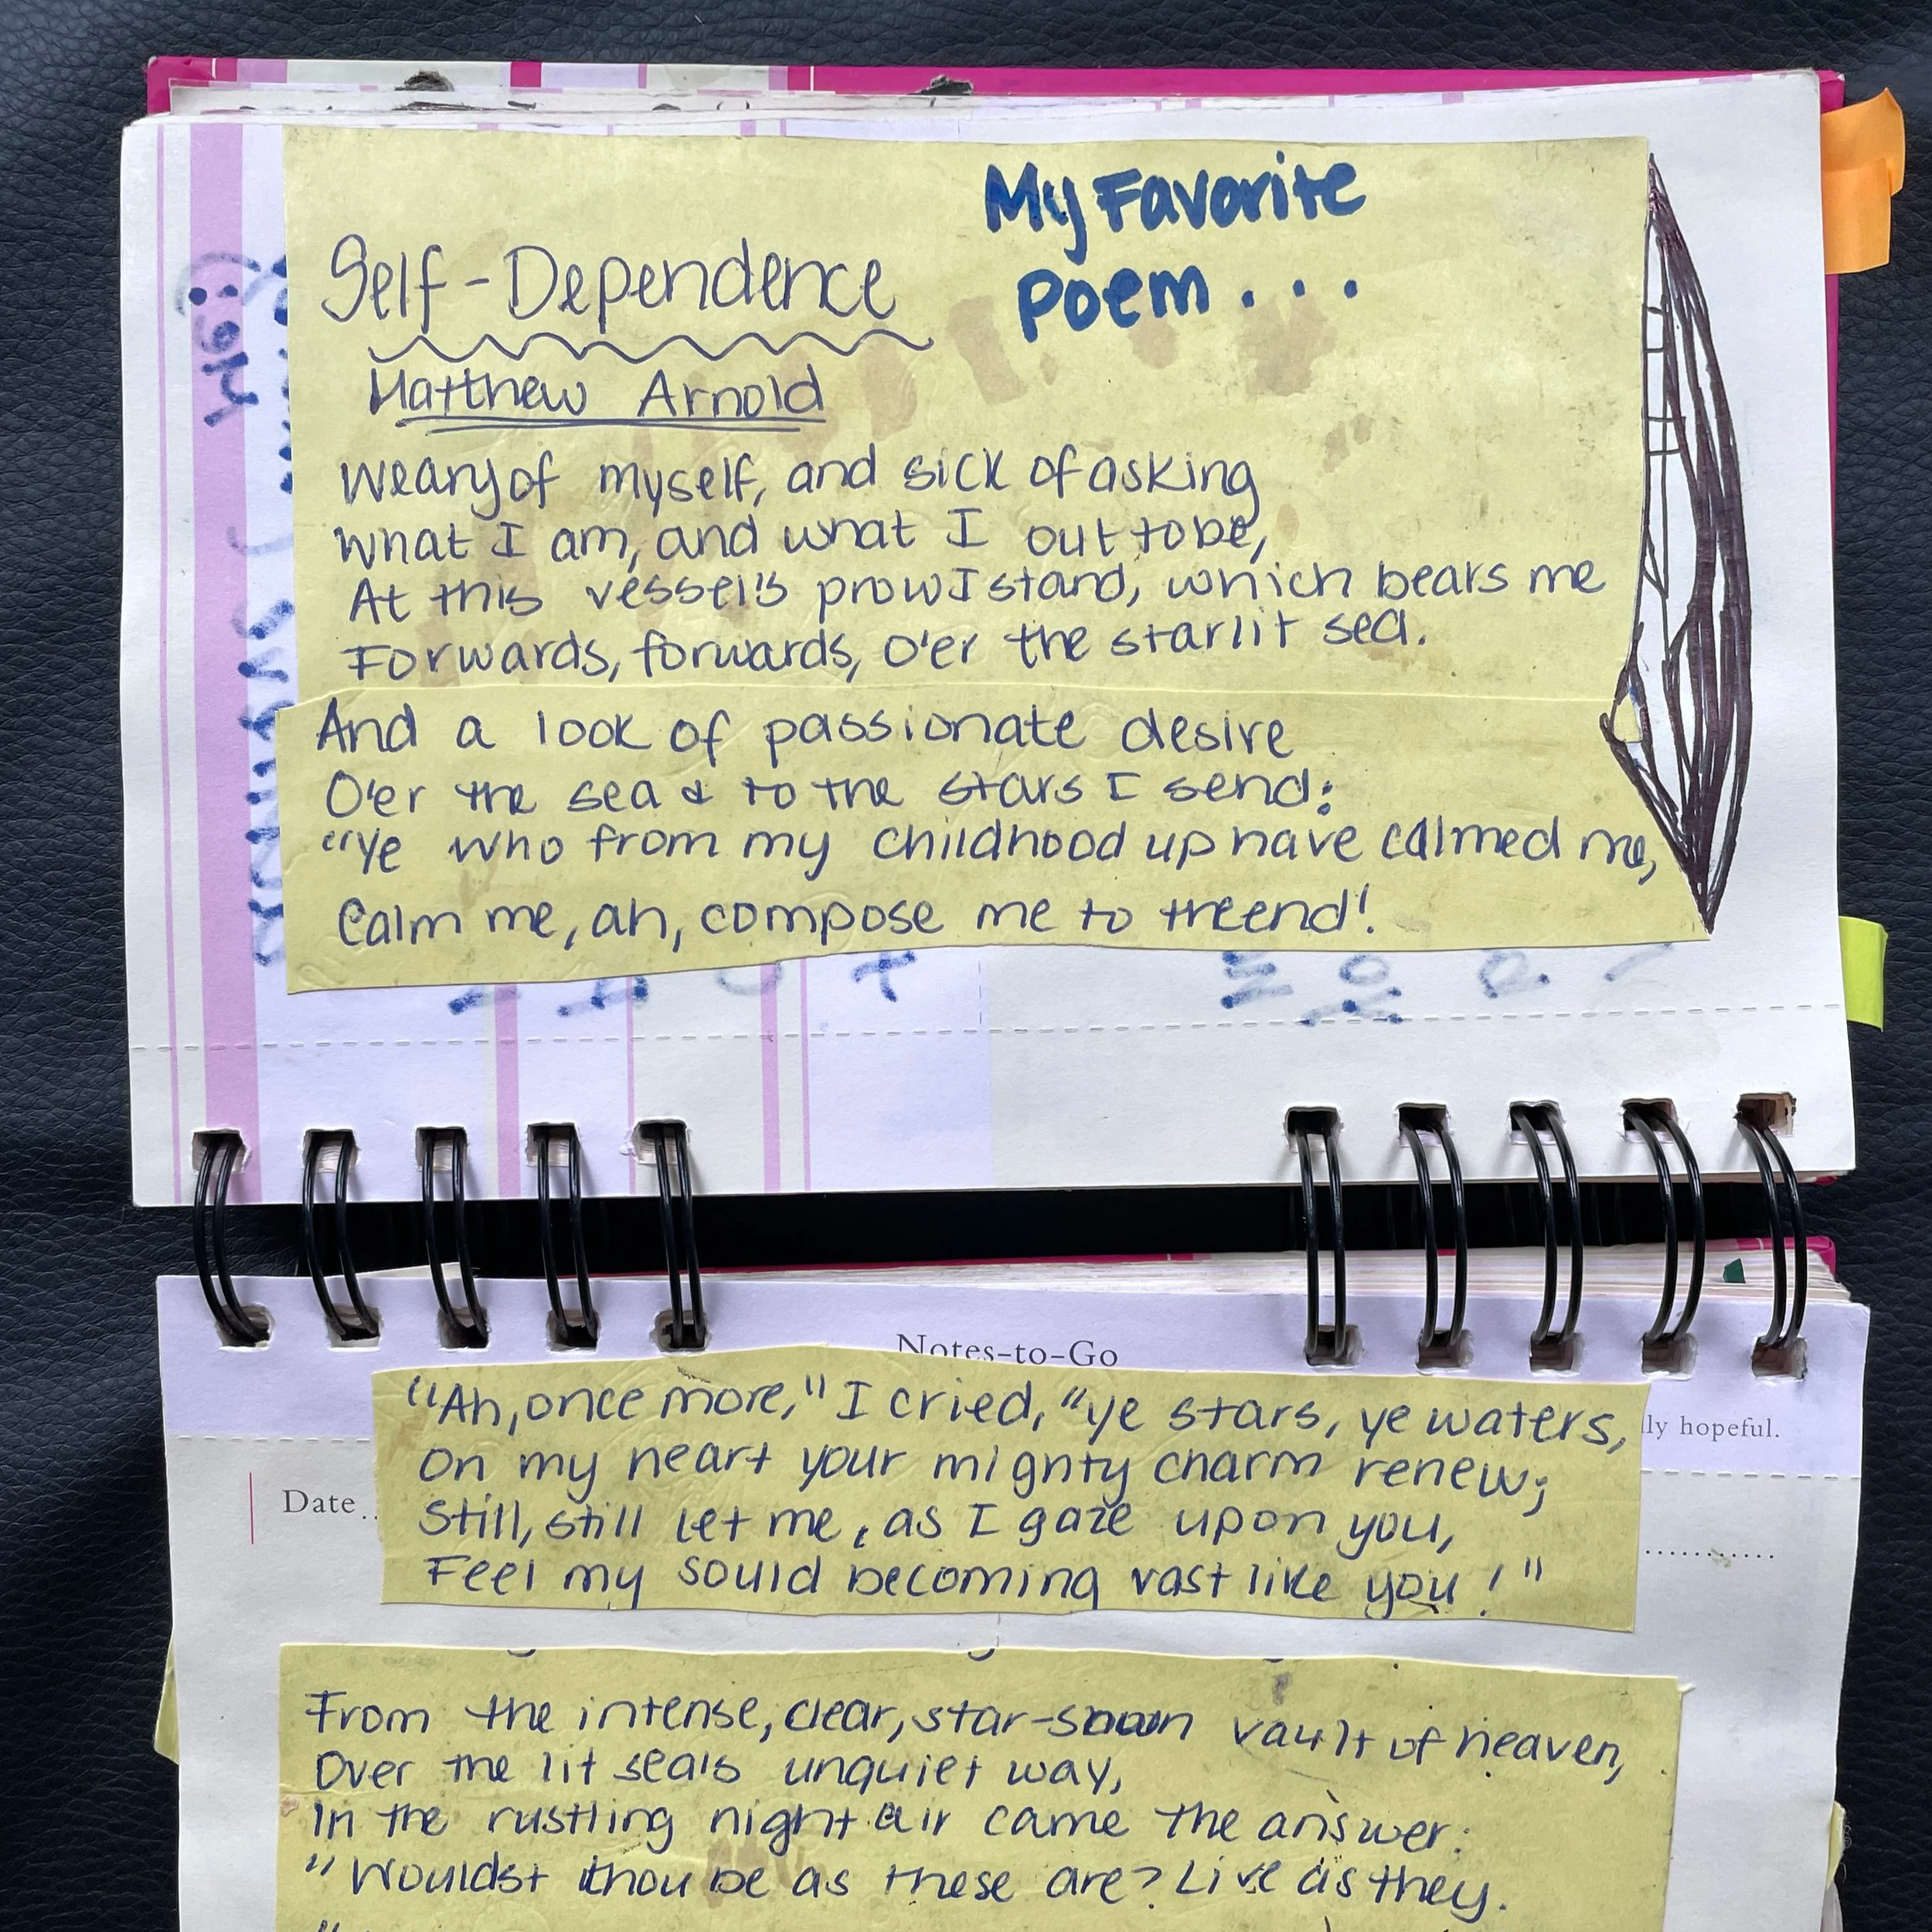 My Favorite
Poem...
Self-Dependence
Matthew Arnold
Weary of myself, and sick of asking
What I am, and what I out to be,
At this vessel's prow I stand, which bears me
Forwards, forwards, o'er the starlit sea.
And a look of passionate desire
O'er the sea & to the stars I send:
"Ye who from my childhood up have calmed me,
Calm me, ah, compose me to the end!
Notes-to-Go
"Ah, once more," I cried, "ye stars, ye waters,
On my heart your mighty charm renew;
Still, still let me, as I gaze upon you,
Feel my sould becoming vast like you!"
lly hopeful.
Date..
From the intense, clear, star-sown vault of heaven,
Over the lit sea's unquiet way,
In the rustling night air came the answer:
"Wouldst thou be as these are? Live as they.